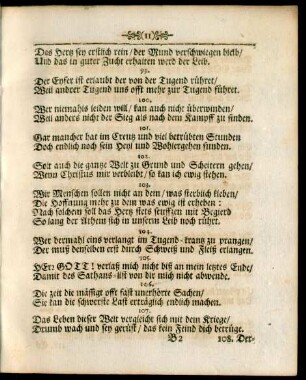 11
Das Hertz sey erstlich rein / der Mund verschwiegen bleib/
Und das in guter Zucht erhalten werd der Leib.
99.
Der Eyfer ist erlaubt der von der Tugend rühret/
Weil andrer Tugend uns offt mehr zur Tugend führet.
100.
Wer niemahls leiden will / kan auch nicht überwinden/
Weil anders nicht der Sieg als nach dem Kampff zu finden.
101.
Gar mancher hat im Creutz und viel betrübten Stunden
Doch endlich noch sein Heyl und Wohlergehen funden.
102.
Solt auch die gantze Welt zu Grund und Scheitern gehen/
Wenn Christus mir verbleibt / so kan ich ewig stehen.
103.
Wir Menschen sollen nicht an dem / was sterblich kleben/
Die Hoffnung mehr zu dem was ewig ist erheben:
Nach solchem soll das Hertz stets seufftzen mit Begierd
So lang der Athem sich in unserm Leib noch rührt.
104.
Wer dermahl eins verlangt im Tugend-krantz zu prangen/
Der muß denselben erst durch Schweiß und Fleiß erlangen.
105.
HErr GOTT! verlaß mich nicht biß an mein letztes Ende/
Damit des Sathans-list von dir mich nicht abwende.
106.
Die Zeit die mässigt offt fast unerhörte Sachen/
Sie kan die schwerste Last erträglich endlich machen.
107.
Das Leben dieser Welt vergleicht sich mit dem Kriege/
Drumb wach und sey gerüst / das kein Feind dich betrüge.
B2
108. Der-